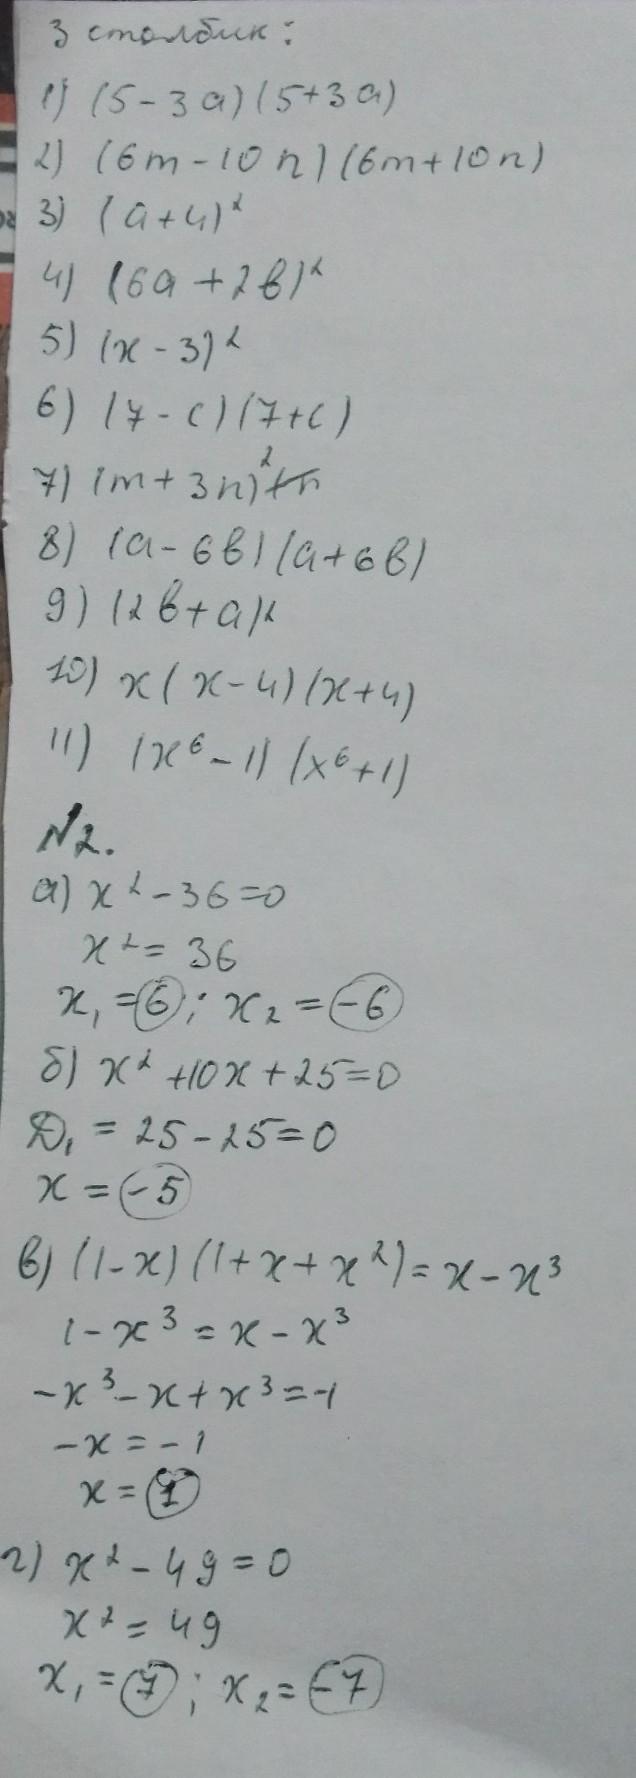 3 столбик:
1) (5-3a)(5+3a)
2) (6m-10n)(6m+10n)
3) (a+4)²
4) (6a+2b)²
5) (x-3)²
6) (7-c)(7+c)
7) (m+3n)²
8) (a-6b)(a+6b)
9) (2b+a)²
10) x(x-4)(x+4)
11) (x⁶-1)(x⁶+1)
N2.
а) x²-36=0
x²=36
x₁=6; x₂=-6
б) x²+10x+25=0
D₁=25-25=0
x=-5
в) (1-x)(1+x+x²)=x-x³
1-x³=x-x³
-x³-x+x³=-1
-x=-1
x=1
г) x²-49=0
x²=49
x₁=7; x₂=-7